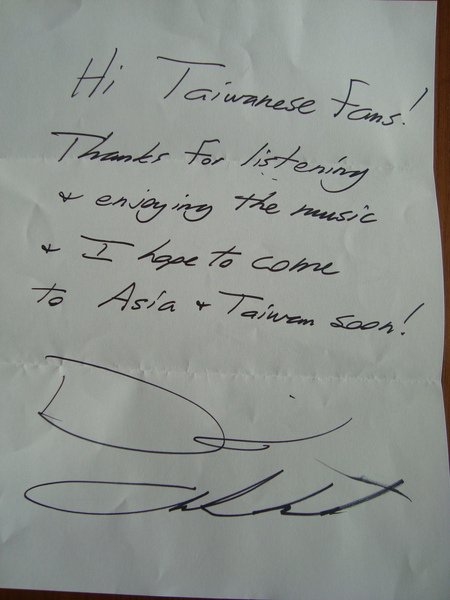 Hi Taiwanese Fans!
Thanks for listening
& enjoying the music
& I hope to come
to Asia & Taiwan soon!